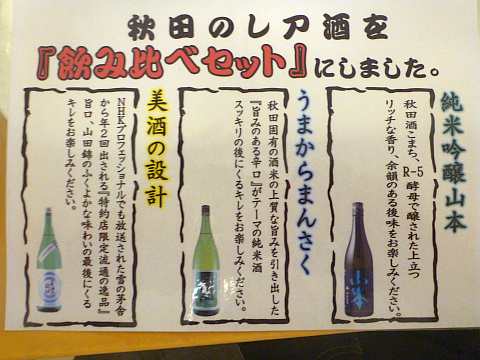 秋田のレア酒を
『飲み比べセット』にしました。
純米吟醸山本
秋田酒こまち、R-5酵母で醸された上立つ
リッチな香り、余韻のある後味をお楽しみください。
山本
うまからまんさく
秋田固有の酒米の上質な旨みを引き出した
『旨みのある辛口』がテーマの純米酒
スッキリの後にくるキレをお楽しみください。
美酒の設計
NHKプロフェッショナルでも放送された雪の茅舎
から年2回出される『特約店限定流通の逸品』
旨口、山田錦のふくよかな味わいの最後にくる
キレをお楽しみください。